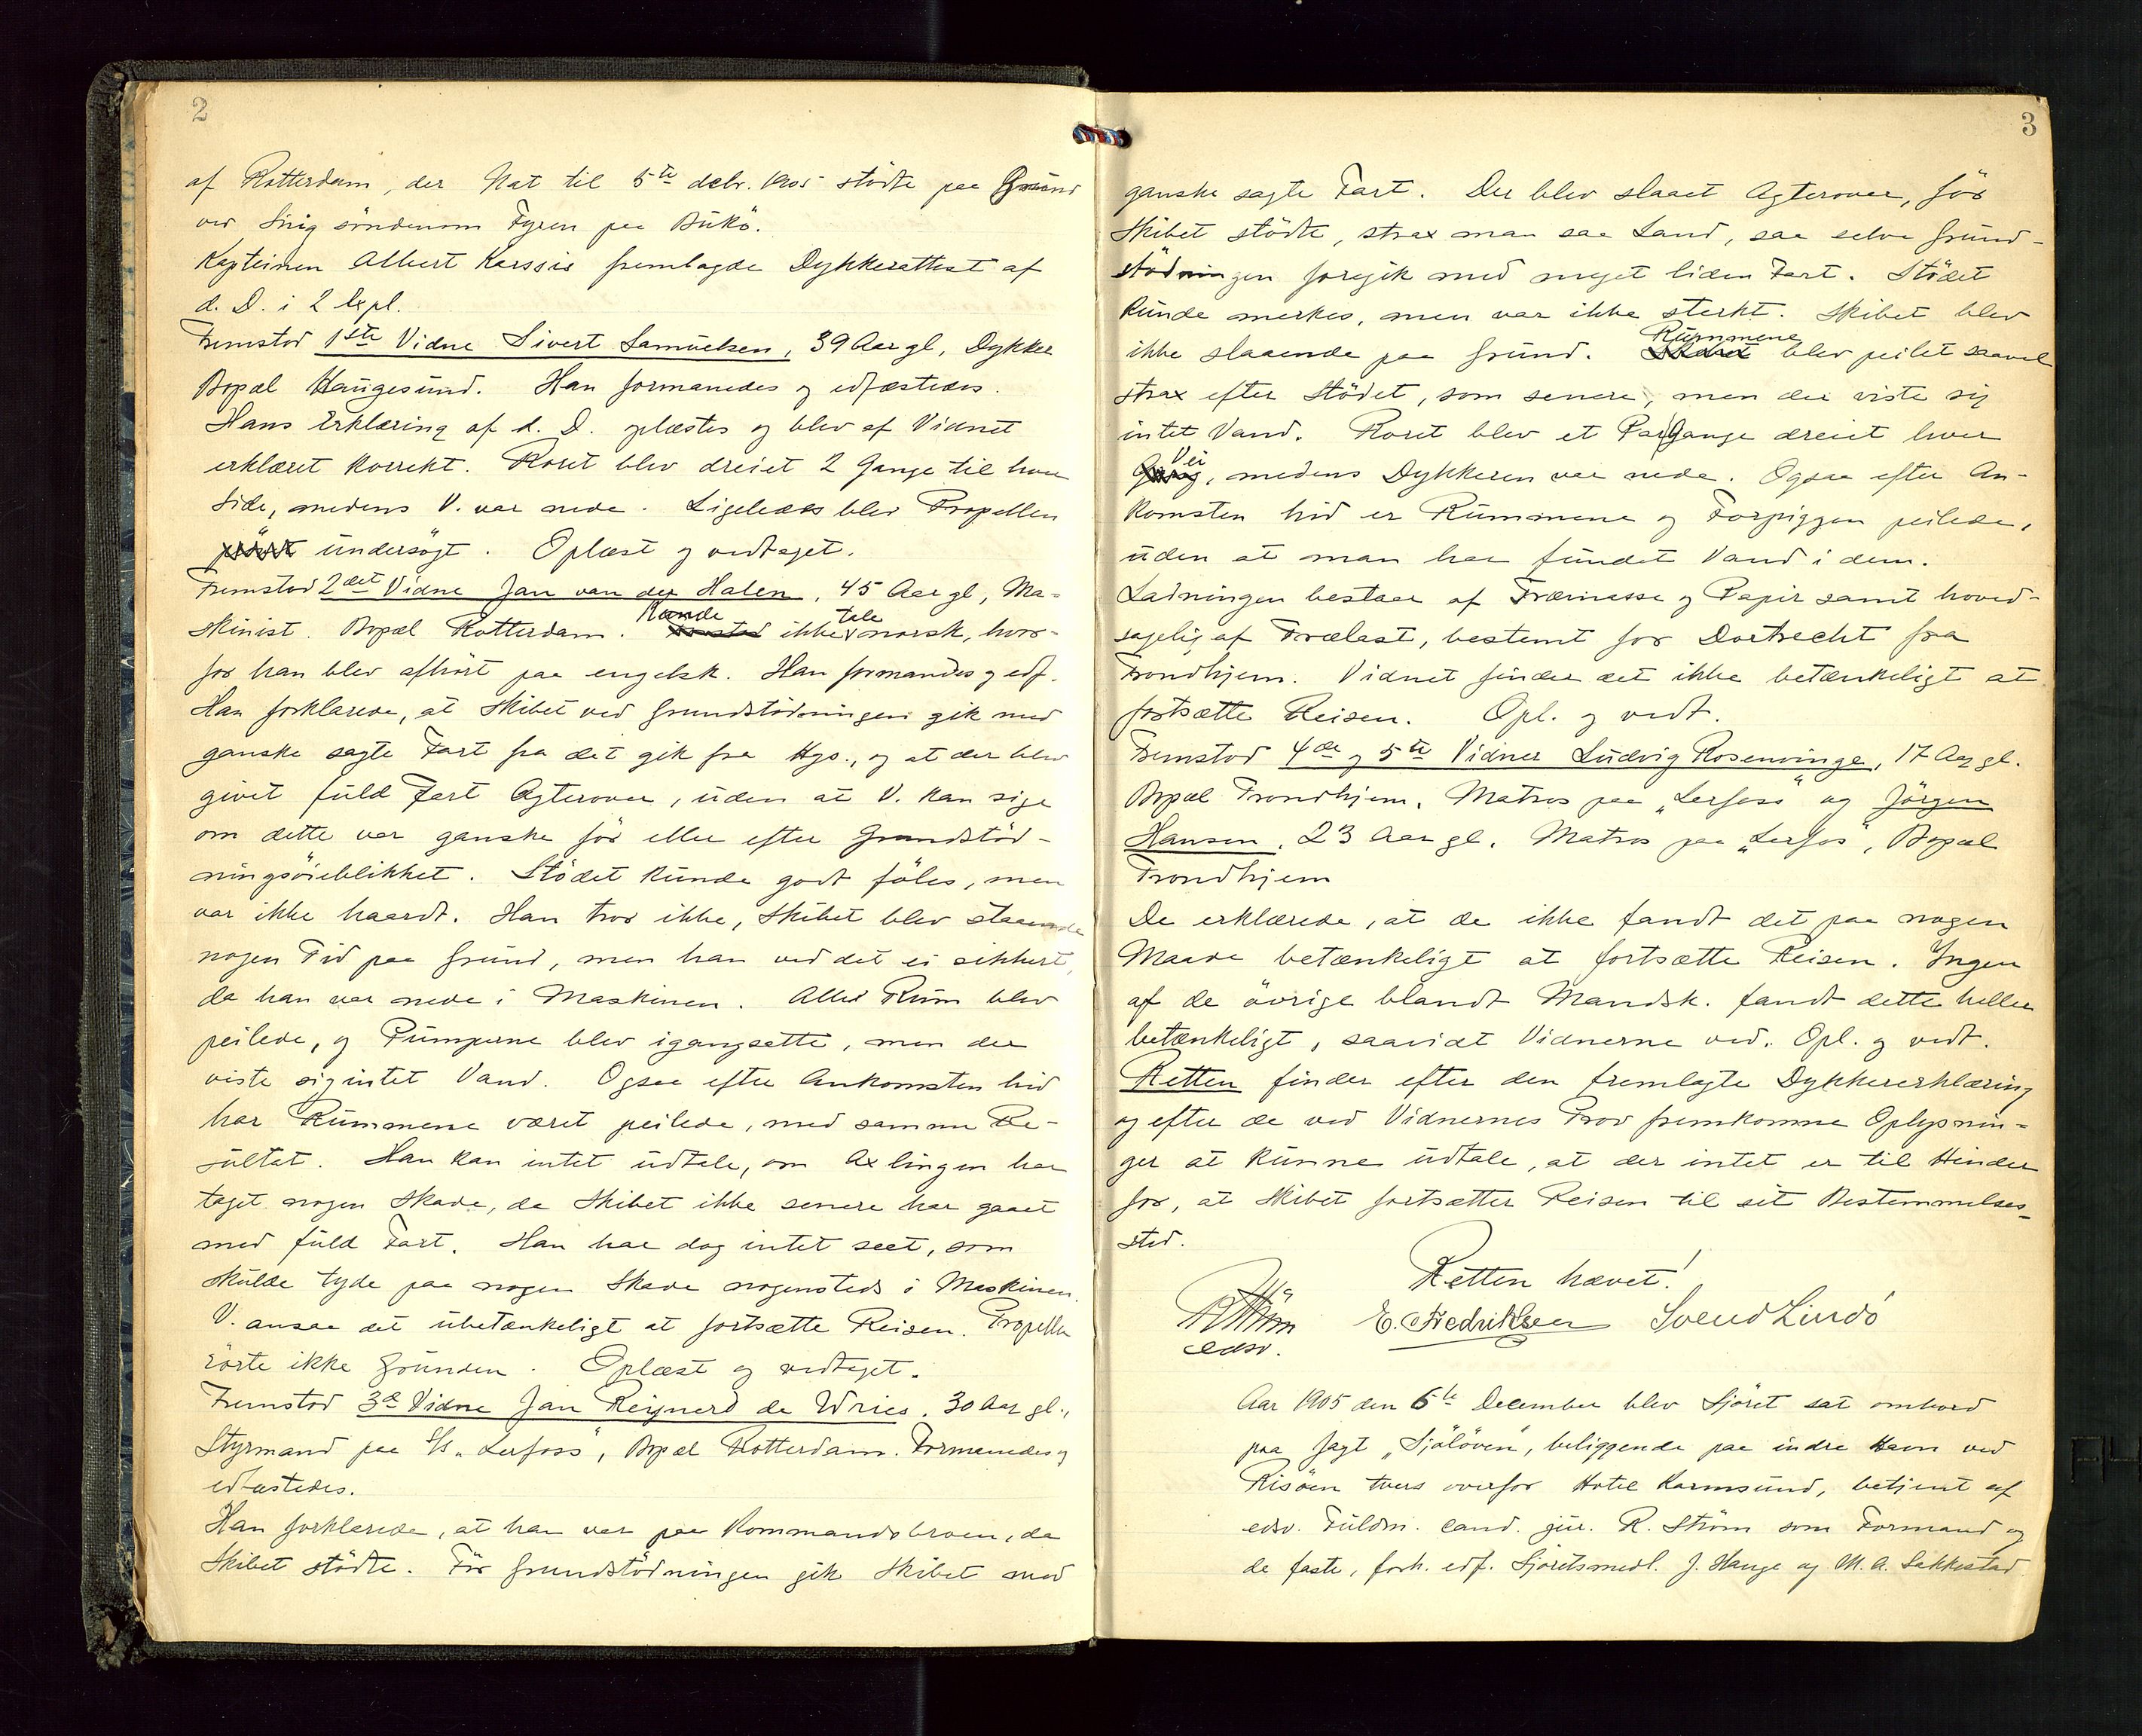 2
af Rotterdam, der Nat til 5te debr. 1905 stödte paa Grund
ved Sirig söndenom Fyren paa Bukö.
Kapteinen Albert Karssies fremlagde Dykkerattest af
d. D. i 2 Expl.
Fremstod 1ste Vidne Sivert Samuelsen, 39 Aar gl, Dykker
Bopæl Haugesund. Han formanedes og edfæstedes.
Hans Erklæring af d. D. oplæstes og blev af Vidnet
erklæret korrekt. Roret blev dreiet 2 Gange til hver
Side, medens V. var nede. Ligeledes blev Propellen
undersøgt. Oplæst og vedtaget.
Fremstod 2det Vidne Jan van der Halen, 45 Aar gl, Ma-
skinist. Bopæl Rotterdam. Kunde ikke tale norsk, hvor-
for han blev afhört paa engelsk. Han formandes og edf.
Han forklarede, at Skibet ved Grundstödningen gik med
ganske sagte Fart fra det gik fra Hgs., og at der blev
givet fuld Fart Agterover, uden at V. kan sige
om dette var ganske för eller efter Grundstöd-
ningsöieblikket. Stödet kunde godt föles, men
var ikke haardt. Han tror ikke, Skibet blev staaende
nogen Tid paa Grund, men han ved det ei sikkert,
da han var nede i Maskinen. Alle Rum blev
peilede, og Pumperne blev igangsatte, men der
viste sig intet Vand. Ogsaa efter Ankomsten hid
har Rummene været peilede, med samme Re-
sultat. Han kan intet udtale, om Axlingen har
taget nogen Skade, da Skibet ikke senere har gaaet
med fuld Fart. Han har dog intet seet, som
skulde tyde paa nogen Skade nogensteds i Maskinen.
V. ansaa det ubetænkeligt at fortsætte Reisen. Propellen
rörte ikke Grunden. Oplæst og vedtaget.
Fremstod 3de Vidne Jan Reijnerd de Wries. 30 Aar gl.,
Styrmand paa S/S "Lerfoss", Bopæl Rotterdam. Formanedes og
edfæstedes.
Han forklarede, at han var paa Kommandobroen, da
Skibet stödte. För Grundstödningen gik Skibet med
3
ganske sagte Fart. Der blev slaaet Agterover, för
Skibet stödte, strax man saa Land, saa selve Grund-
stödningen foregik med meget liden Fart. Stödet
kunde merkes, men var ikke sterkt. Skibet blev
ikke staaende paa Grund. Rummene blev peilet saavel
strax efter Stödet, som senere, men der viste sig
intet Vand. Roret blev et Par Gange dreiet hver
Vei, medens Dykkeren var nede. Ogsaa efter An-
komsten hid er Rummene og Forpiggen peilede,
uden at man har fundet Vand i dem.
Ladningen bestaar af Træmasse og Papir samt hoved-
sagelig af Trælast, bestemt for Dortrecht fra
Trondhjem. Vidnet finder det ikke betænkeligt at
fortsætte Reisen. Opl. og vedt.
Fremstod 4de og 5te Vidner Ludvig Rosenvinge, 17 Aar gl.
Bopæl Trondhjem, Matros paa "Lerfoss" og Jörgen
Hansen, 23 Aar gl. Matros paa "Lerfos", Bopæl
Trondhjem
De erklærede, at de ikke fandt det paa nogen
Maade betænkeligt at fortsætte Reisen. Ingen
af de övrige blandt Mandsk. fandt dette heller
betænkeligt, saavidt Vidnerne ved. Opl. og vedt.
Retten finder efter den fremlagte Dykkererklæring
og efter de ved Vidnernes Prov fremkomne Oplysnin-
ger at kunne udtale, at der intet er til Hinder
for, at Skibet fortsætter Reisen til sit Bestemmelses-
sted.
Retten hævet!
RStröm E. Fredriksen Svend Lindö
edsv.
Aar 1905 den 6te December blev Sjöret sat ombord
paa Jagt "Sjölöven", beliggende paa indre Havn ved
Risöen tvers overfor Hotel Karmsund, betjent af
edsv. Fuldm. cand. jur. R. Ström som Formand og
de faste, forh. edf. Sjöretsmedl. J. Hauge og M. A. Sakkestad